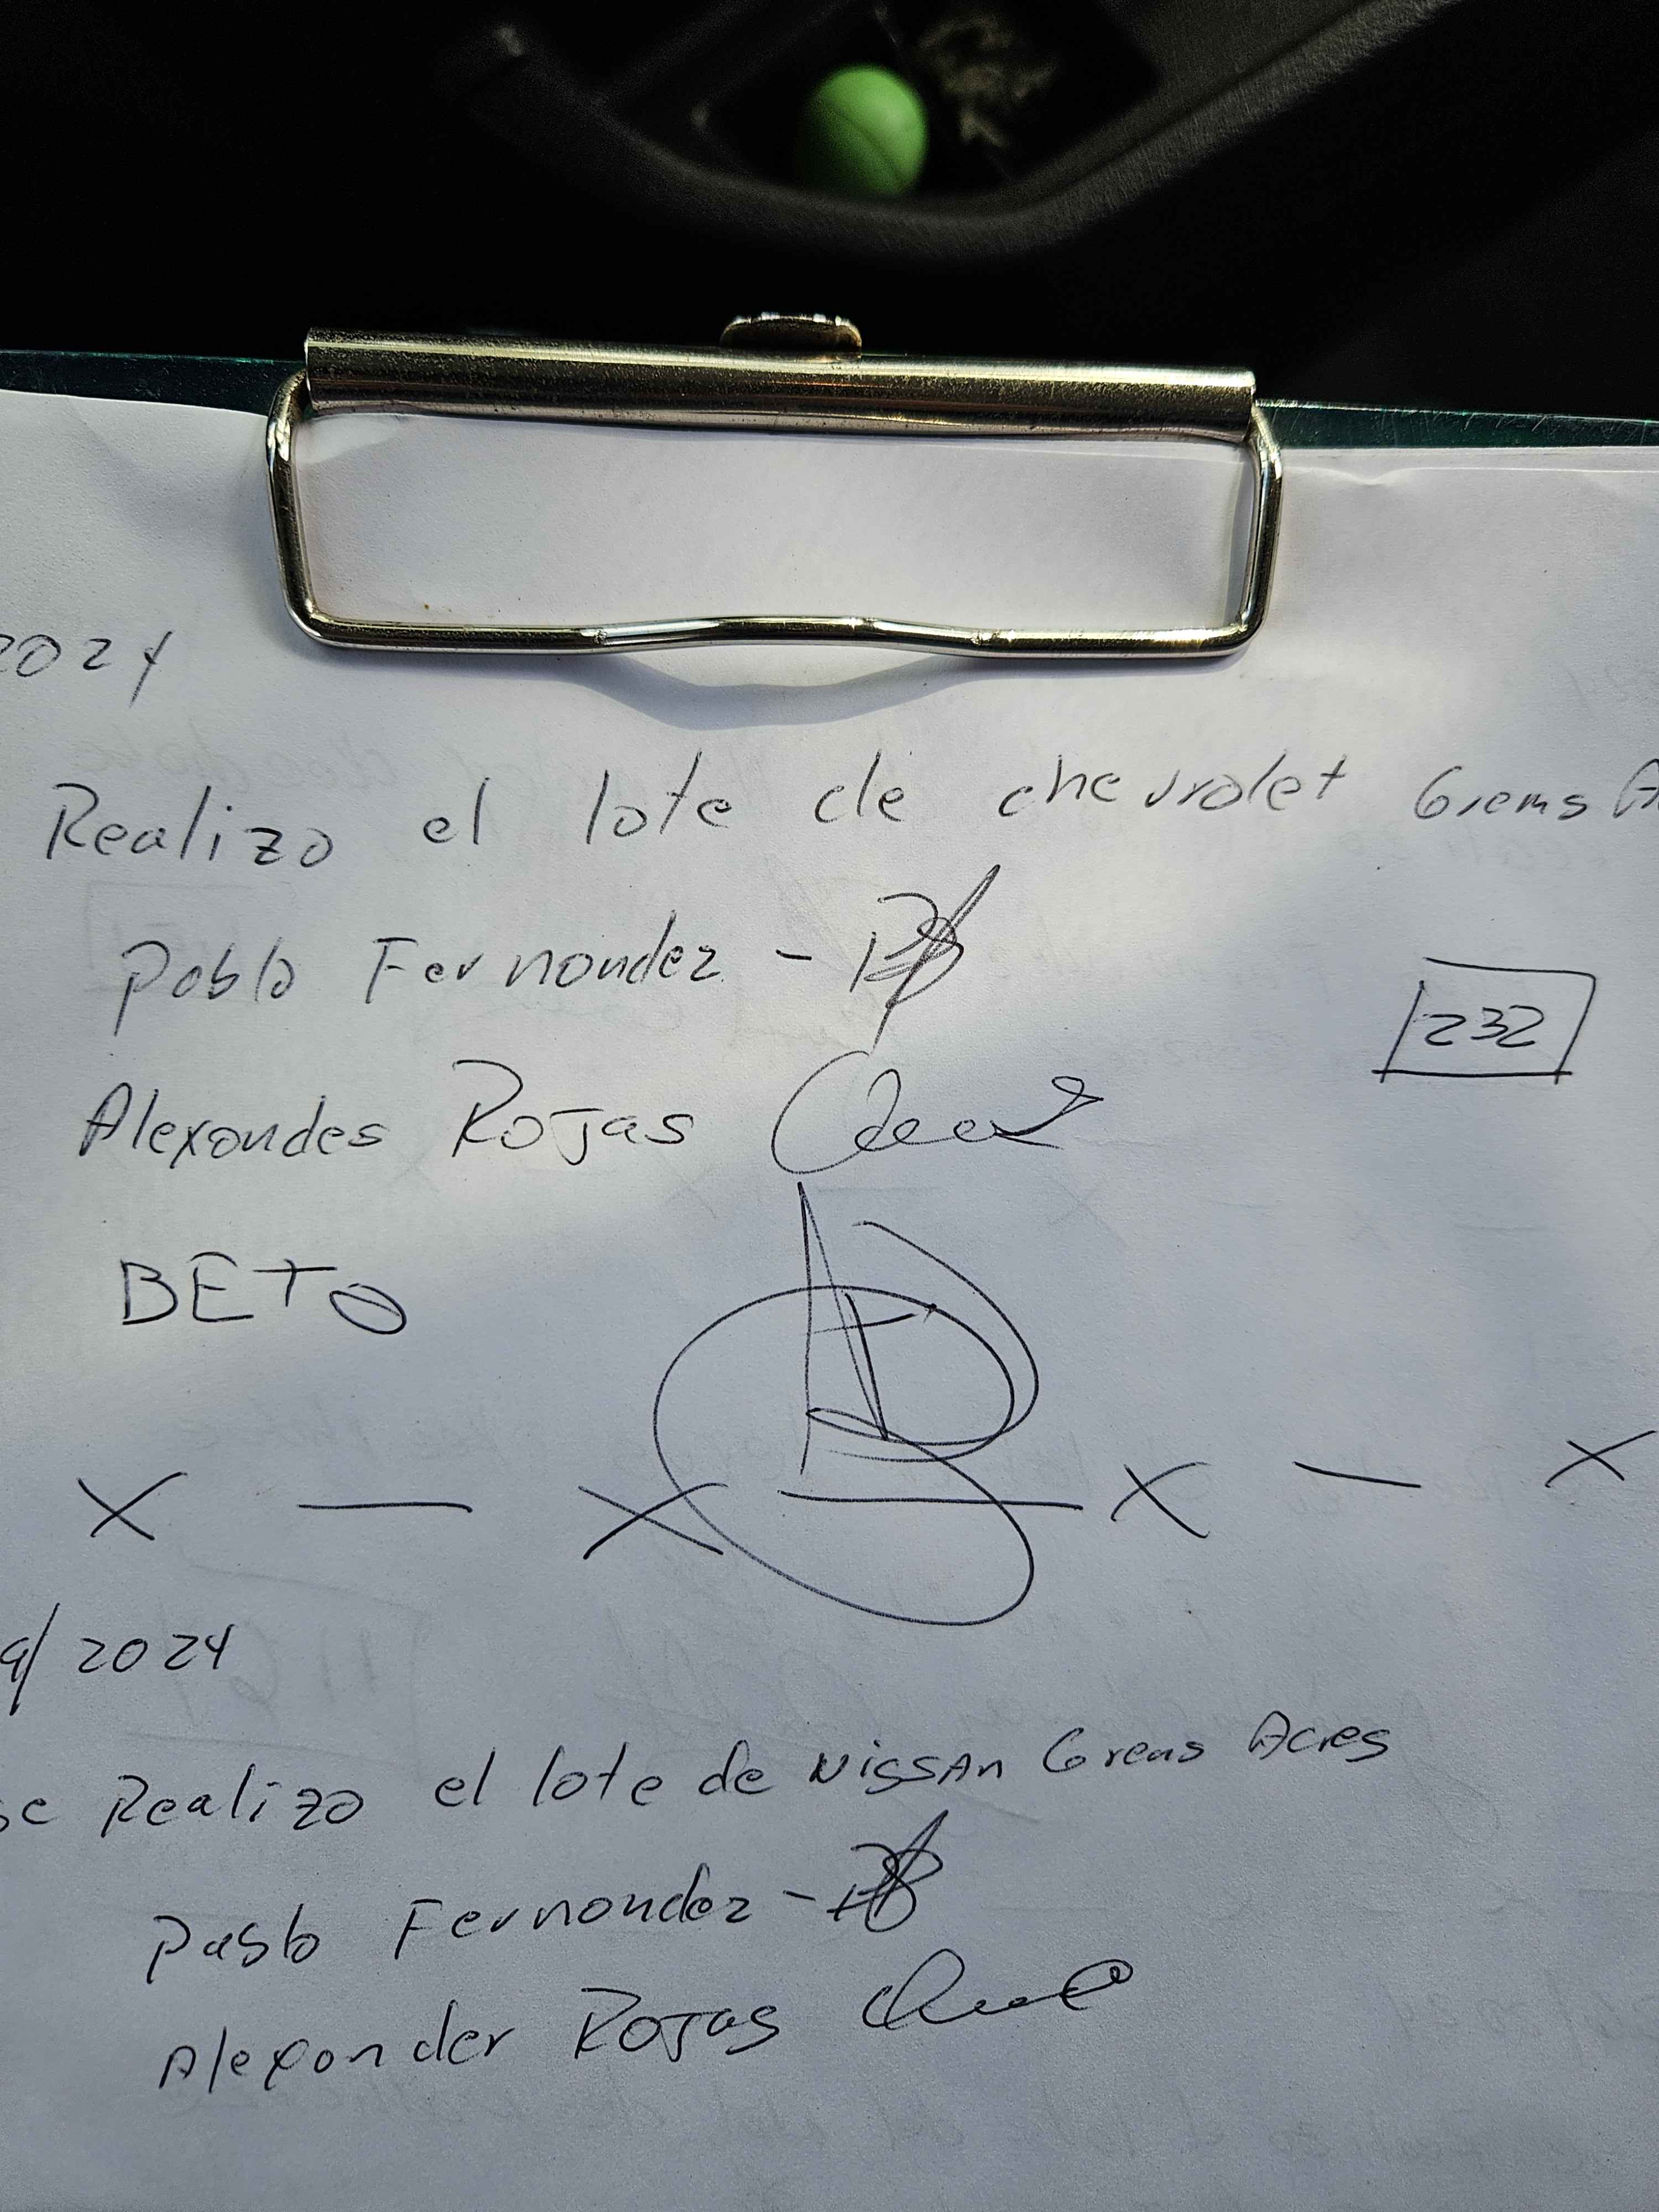 2024
Realizo el lote de chevrolet Grens A
Pablo Fernondez -
232
Alexondes Rojas
BETO
x — x — x — x
9/2024
se Realizo el lote de Nissan Grens Acres
Pablo Fernondez -
Alexonder Rojas